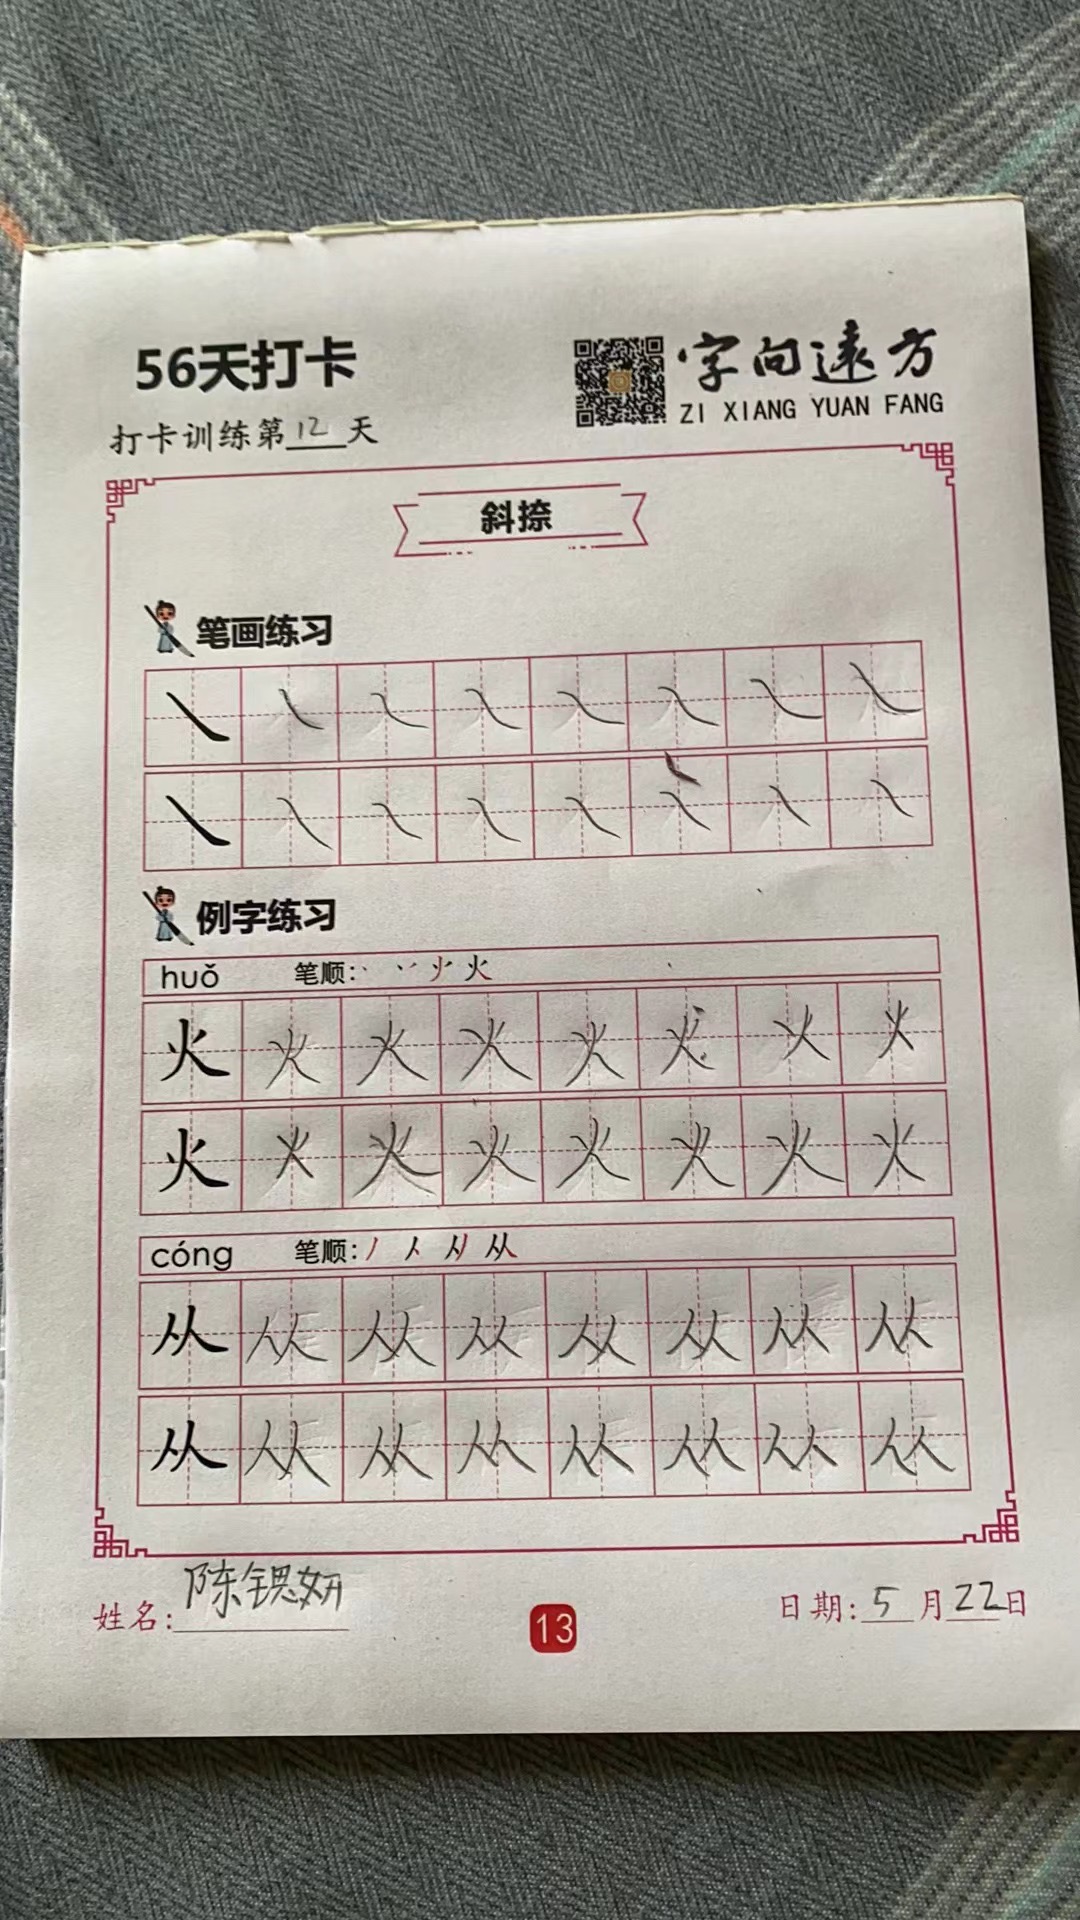 56天打卡
字向远方
ZI XIANG YUAN FANG
打卡训练第12天
斜捺
笔画练习
㇏ ㇏ ㇏ ㇏ ㇏ ㇏ ㇏ ㇏
㇏ ㇏ ㇏ ㇏ ㇏ ㇏ ㇏ ㇏
例字练习
huǒ 笔顺: 火
火 火 火 火 火 火 火 火
火 火 火 火 火 火 火 火
cóng 笔顺: 丿 人 从
从 从 从 从 从 从 从 从
从 从 从 从 从 从 从 从
姓名: 陈锶妍
13
日期: 5月22日